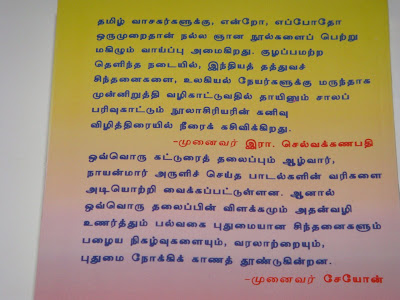 தமிழ் வாசகர்களுக்கு, என்றோ, எப்போதோ
ஒருமுறைதான் நல்ல ஞான நூல்களைப் பெற்று
மகிழும் வாய்ப்பு அமைகிறது. குழப்பமற்ற
தெளிந்த நடையில், இந்தியத் தத்துவச்
சிந்தனைகளை, உலகியல் நேயர்களுக்கு மருந்தாக
முன்னிறுத்தி வழிகாட்டுவதில் தாயினும் சாலப்
பரிவுகாட்டும் நூலாசிரியரின் கனிவு
விழித்திரையில் நீரைக் கசிவிக்கிறது.
-முனைவர் இரா. செல்வக்கணபதி
ஒவ்வொரு கட்டுரைத் தலைப்பும் ஆழ்வார்,
நாயன்மார் அருளிச் செய்த பாடல்களின் வரிகளை
அடியொற்றி வைக்கப்பட்டுள்ளன. ஆனால்
ஒவ்வொரு தலைப்பின் விளக்கமும் அதன்வழி
உணர்த்தும் பல்வகை புதுமையான சிந்தனைகளும்
பழைய நிகழ்வுகளையும், வரலாற்றையும்,
புதுமை நோக்கிக் காணத் தூண்டுகின்றன.
-முனைவர் சேயோன்